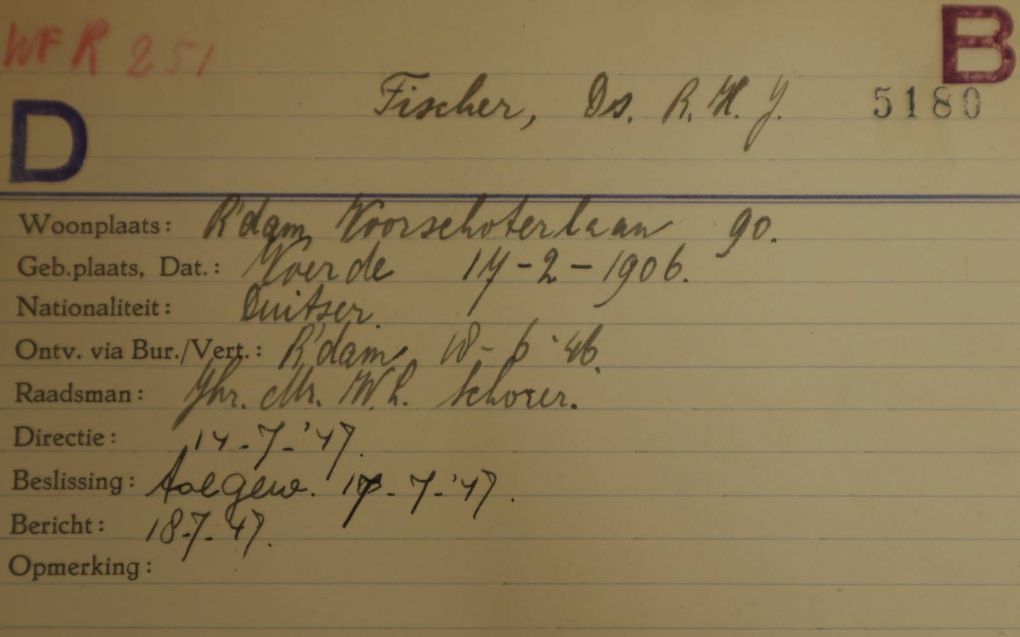 WFR 251
B
Fischer, Ds. R. H. J.
5180
D
Woonplaats: R'dam, Voorschoterlaan 90.
Geb.plaats, Dat.: Voerde 17-2-1906.
Nationaliteit: Duitser.
Ontv. via Bur./Vert.: R'dam, 18-6-'46.
Raadsman: Jhr. Mr. W.L. Schorer.
Directie: 14-7-'47.
Beslissing: toegew. 17-7-'47.
Bericht: 18-7-47.
Opmerking: